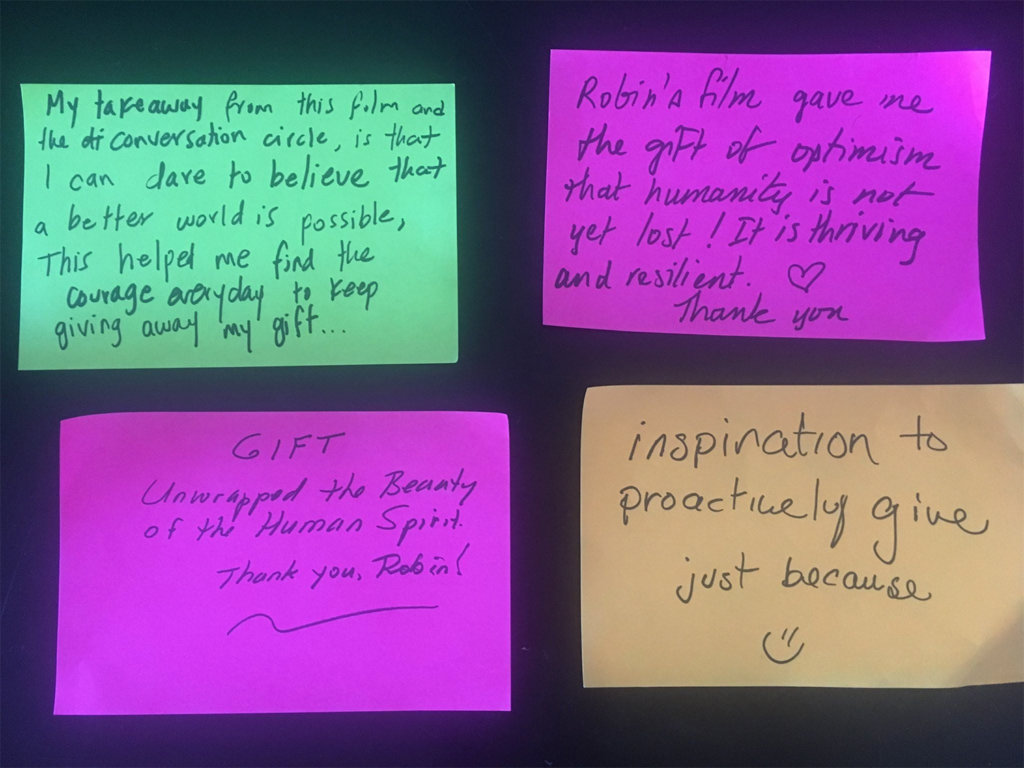 My takeaway from this film and
the di conversation circle, is that
I can dare to believe that
a better world is possible,
This helped me find the
courage everyday to keep
giving away my gift...
Robin's film gave me
the gift of optimism
that humanity is not
yet lost! It is thriving
and resilient. ♡
Thank you
GIFT
Unwrapped the Beauty
of the Human Spirit.
Thank you, Robin!
inspiration to
proactively give
just because